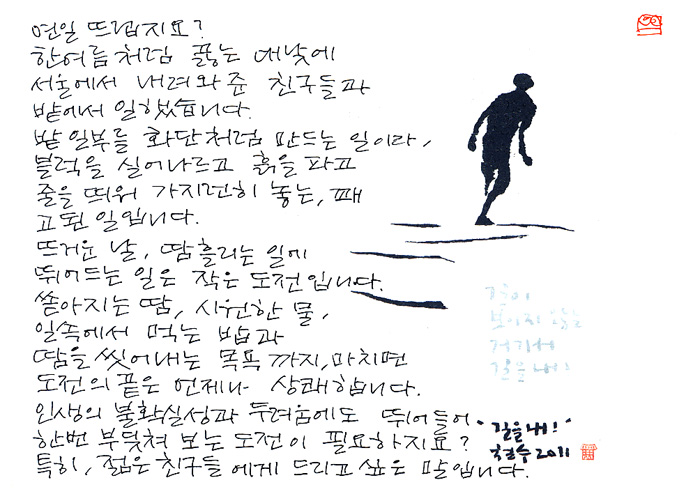 연일 뜨겁지요?
한여름처럼 끓는 대낮에
서울에서 내려와준 친구들과
밭에서 일했습니다.
밭 일부를 화단처럼 만드는 일이라,
블럭을 실어나르고 흙을 파고
줄을 띄워 가지런히 놓는, 꽤
고된 일입니다.
뜨거운 날, 땀흘리는 일에
뛰어드는 일은 작은 도전입니다.
쏟아지는 땀, 시원한 물,
일속에서 먹는 밥과
땀을 씻어내는 목욕까지, 마치면
도전의 끝은 언제나 상쾌합니다.
인생의 불확실성과 두려움에도 뛰어들어
한번 부딪쳐 보는 도전이 필요하지요?
특히, 젊은 친구들에게 드리고 싶은 말입니다.
길이
보이지 않는
거기서
길을 내!
"길을 내!"
철수 2011